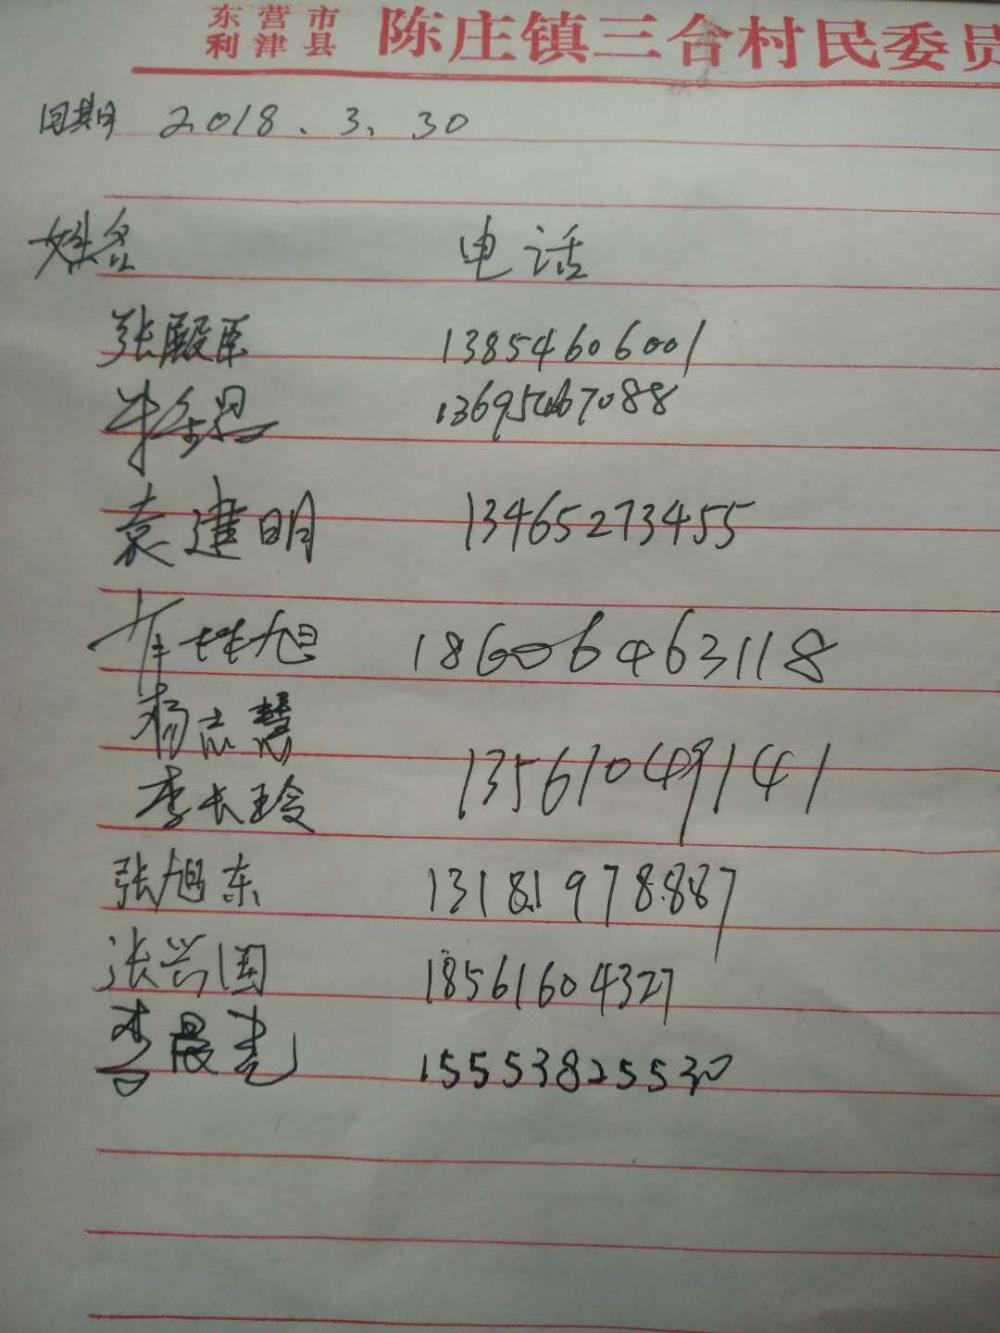 东营市
利津县 陈庄镇三合村民委员
日期 2018.3.30
姓名 电话
张殿臣 13854606001
13695467088
袁建明 13465273455
旭 18606463118
杨志慧
李长玲 13561049141
张旭东 13181978887
张兴国 18561604327
李晨光 15553825530